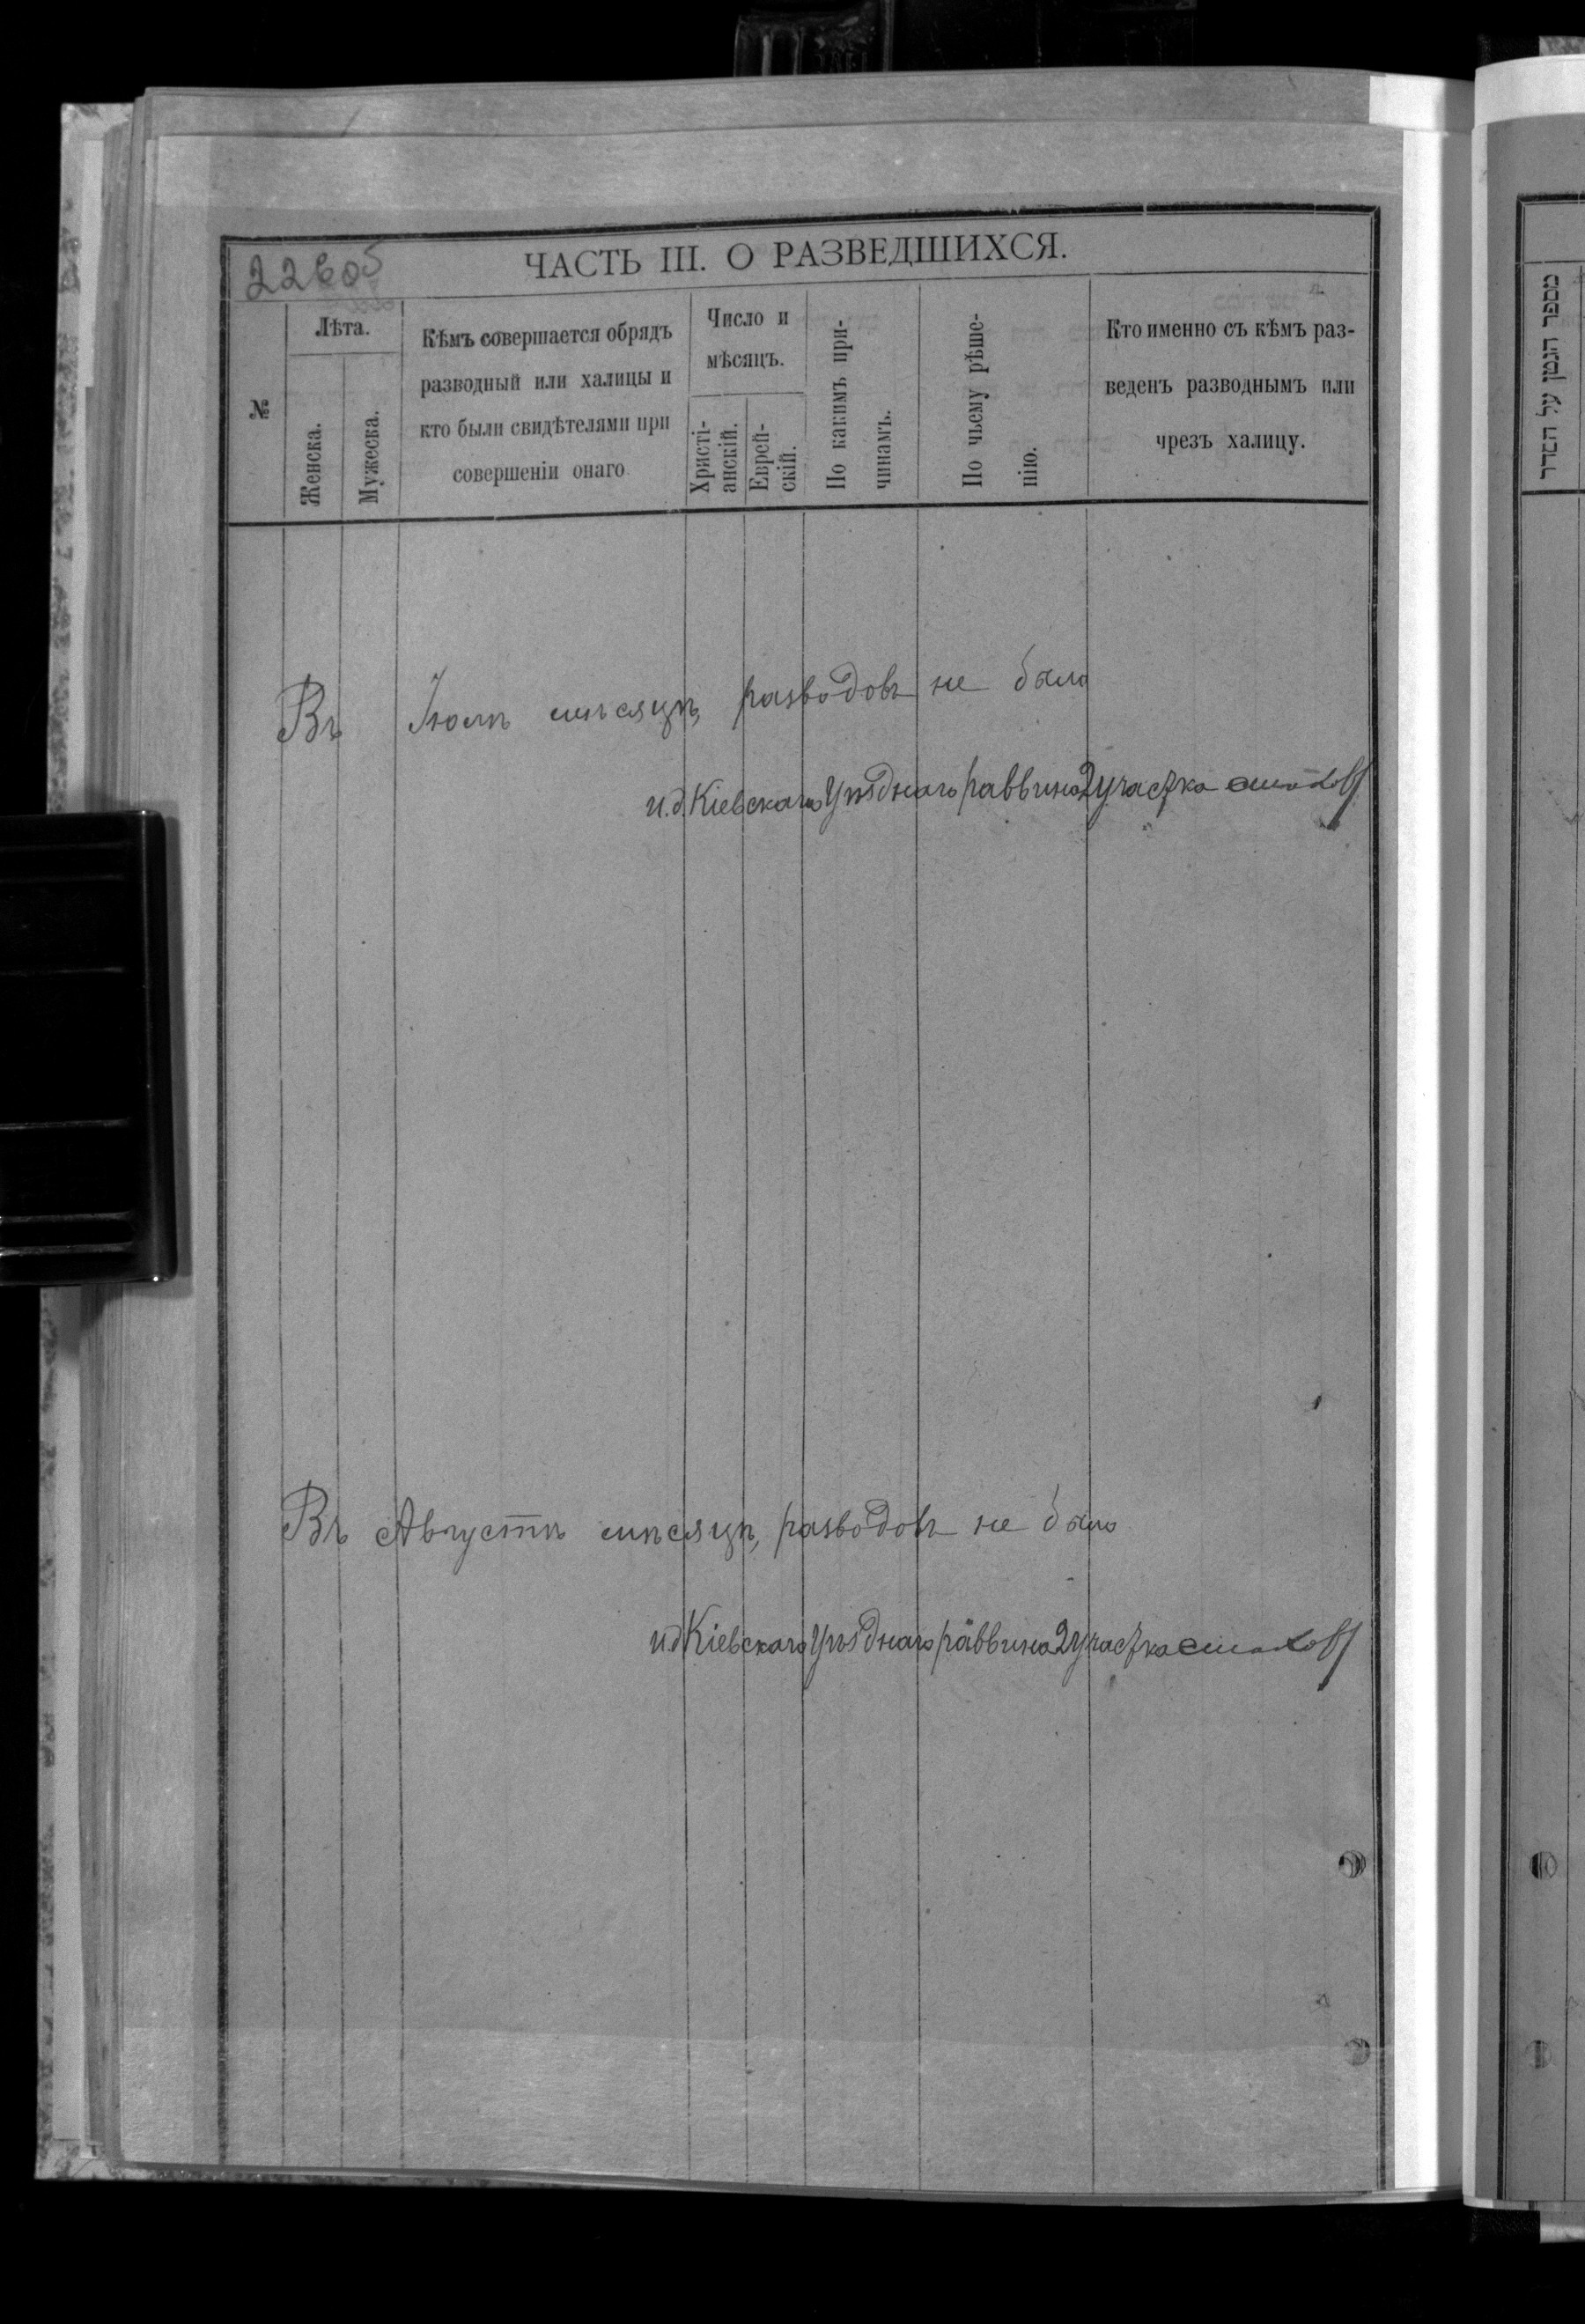 22605
ЧАСТЬ III. О РАЗВЕДШИХСЯ.
№
Лѣта.
Женска.
Мужеска.
Кѣмъ совершается обрядъ
разводный или халицы и
кто были свидѣтелями при
совершеніи онаго
Число и
мѣсяцъ.
Христі-
анскій.
Еврей-
скій.
По какимъ при-
чинамъ.
По чьему рѣше-
нію.
Кто именно съ кѣмъ раз-
веденъ разводнымъ или
чрезъ халицу.
Въ Іюлѣ мѣсяцѣ, разводовъ не было
и.д. Кіевскаго Уѣзднаго раввина 2 участка
Въ Августѣ мѣсяцѣ, разводовъ не было
и.д Кіевскаго Уѣзднаго раввина 2 участка
מספר הגטן על הסדר